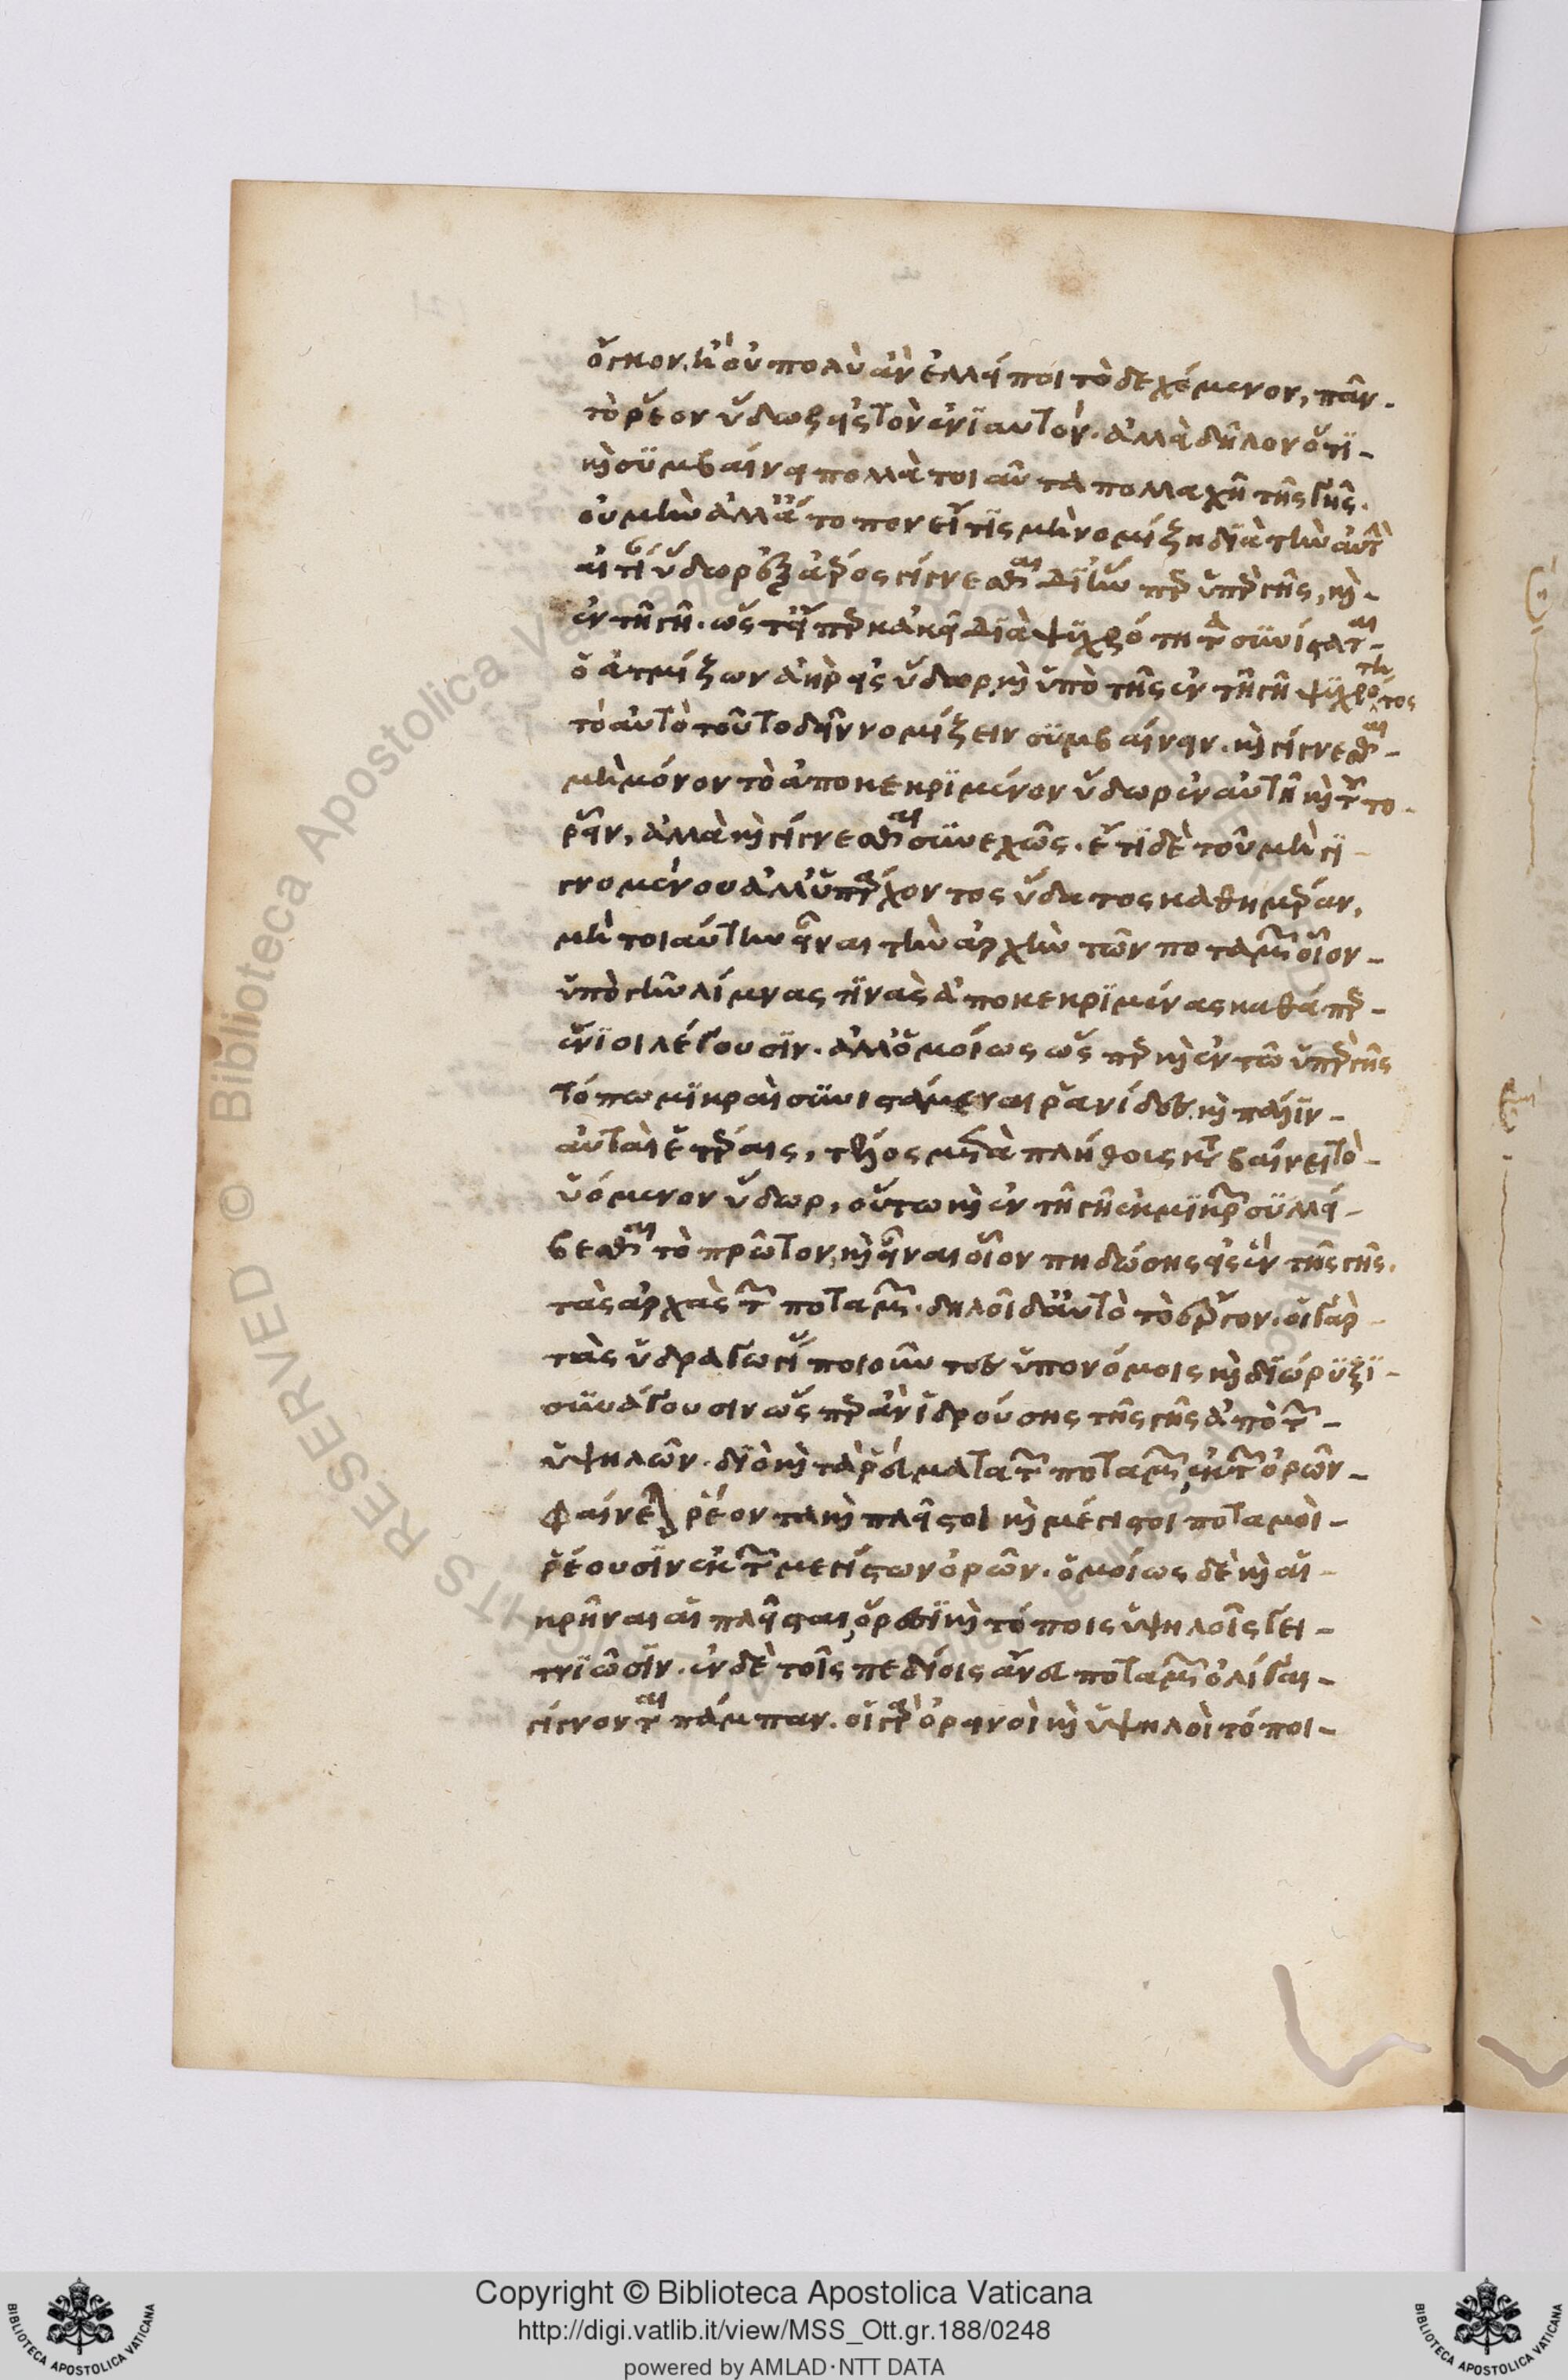 ὄγκον, ἢ οὐ πολὺ ἂν ἐλλείποι τὸ δεχόμενον, πᾶν
τὸ ῥέον ὕδωρ εἰς τὸν ἐνιαυτόν. ἀλλὰ δῆλον ὅτι
καὶ συμβαίνει πολλὰ τοιαῦτα πολλαχῆ τῆς γῆς.
οὐ μὴν ἀλλ' ἄτοπον εἴ τις μὴ νομίζη διὰ τὴν αὐτ
αἰτί ὕδωρ ἐξ ἀέρος γίγνεσθαι δι' ἣν περ ὑπὲρ γῆς, καὶ
ἐν τῆ γῆ. ὥστ' εἴπερ κἀκεῖ διὰ ψυχρότητα συνίσταται
ὁ ἀτμίζων ἀὴρ εἰς ὕδωρ, καὶ ὑπὸ τῆς ἐν τῆ γῆ ψυχρότητος
τὸ αὐτὸ τοῦτο δεῖ νομίζειν συμβαίνειν. καὶ γίγνεσθαι
μὴ μόνον τὸ ἀποκεκριμένον ὕδωρ ἐν αὐτῆ καὶ τοῦτο
ῥεῖν, ἀλλὰ καὶ γίγνεσθαι συνεχῶς. ἔτι δὲ τοῦ μὴ γι
γνομένου ἀλλ' ὑπάρχοντος ὕδατος καθημέραν,
μὴ τοιαύτην εἶναι τὴν ἀρχὴν τῶν ποταμῶν οἷον
ὑπὸ γῆν λίμνας τινὰς ἀποκεκριμένας καθάπερ
ἔνιοι λέγουσιν. ἀλλ' ὁμοίως ὥσπερ καὶ ἐν τῶ ὑπὲρ γῆς
τόπω μικραὶ συνιστάμεναι ῥανίδες, καὶ πάλιν
αὗται ἑτέραις, τέλος μετὰ πλήθους καταβαίνει τὸ
ὑόμενον ὕδωρ, οὕτω καὶ ἐν τῆ γῆ ἐκ μικρῶν συλλεί
βεσθαι τὸ πρῶτον, καὶ εἶναι οἷον πηδώσης εἰς ἓν τῆς γῆς
τὰς ἀρχὰς τῶν ποταμῶν. δηλοῖ δ' αὐτὸ τὸ ἔργον. οἱ γὰρ
τὰς ὑδραγωγί ποιοῦν τες ὑπονόμοις καὶ διώρυξι
συνάγουσιν ὥσπερ ἂν ἰδρούσης τῆς γῆς ἀπὸ τῶν
ὑψηλῶν. διὸ καὶ τὰ ῥεύματα τῶν ποταμῶν, ἐκ τῶν ὀρῶν
φαίνεται ῥέοντα καὶ πλεῖστοι καὶ μέγιστοι ποταμοὶ
ῥέουσιν ἐκ τῶν μεγίστων ὀρῶν. ὁμοίως δὲ καὶ αἱ
κρῆναι αἱ πλεῖσται, ὄρεσι καὶ τόποις ὑψηλοῖς γει
τνιῶσιν. ἐν δὲ τοῖς πεδίοις ἄνευ ποταμῶν ὀλίγαι
γίγνονται πάμπαν. οἱ γὰρ ὀρεινοὶ καὶ ὑψηλοὶ τόποι
Copyright © Biblioteca Apostolica Vaticana
http://digi.vatlib.it/view/MSS_Ott.gr.188/0248
powered by AMLAD·NTT DATA